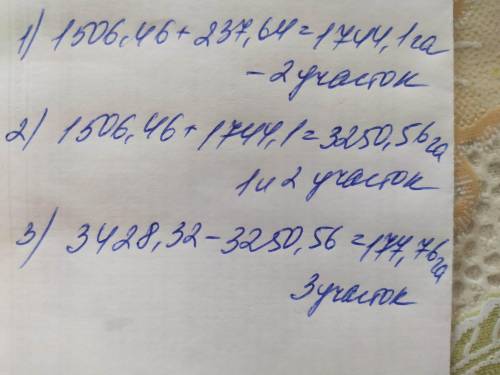 1) 1506,46 + 237,64 = 1744,1 га
- 2 участок
2) 1506,46 + 1744,1 = 3250,56 га
1 и 2 участок
3) 3428,32 - 3250,56 = 177,76 га
3 участок